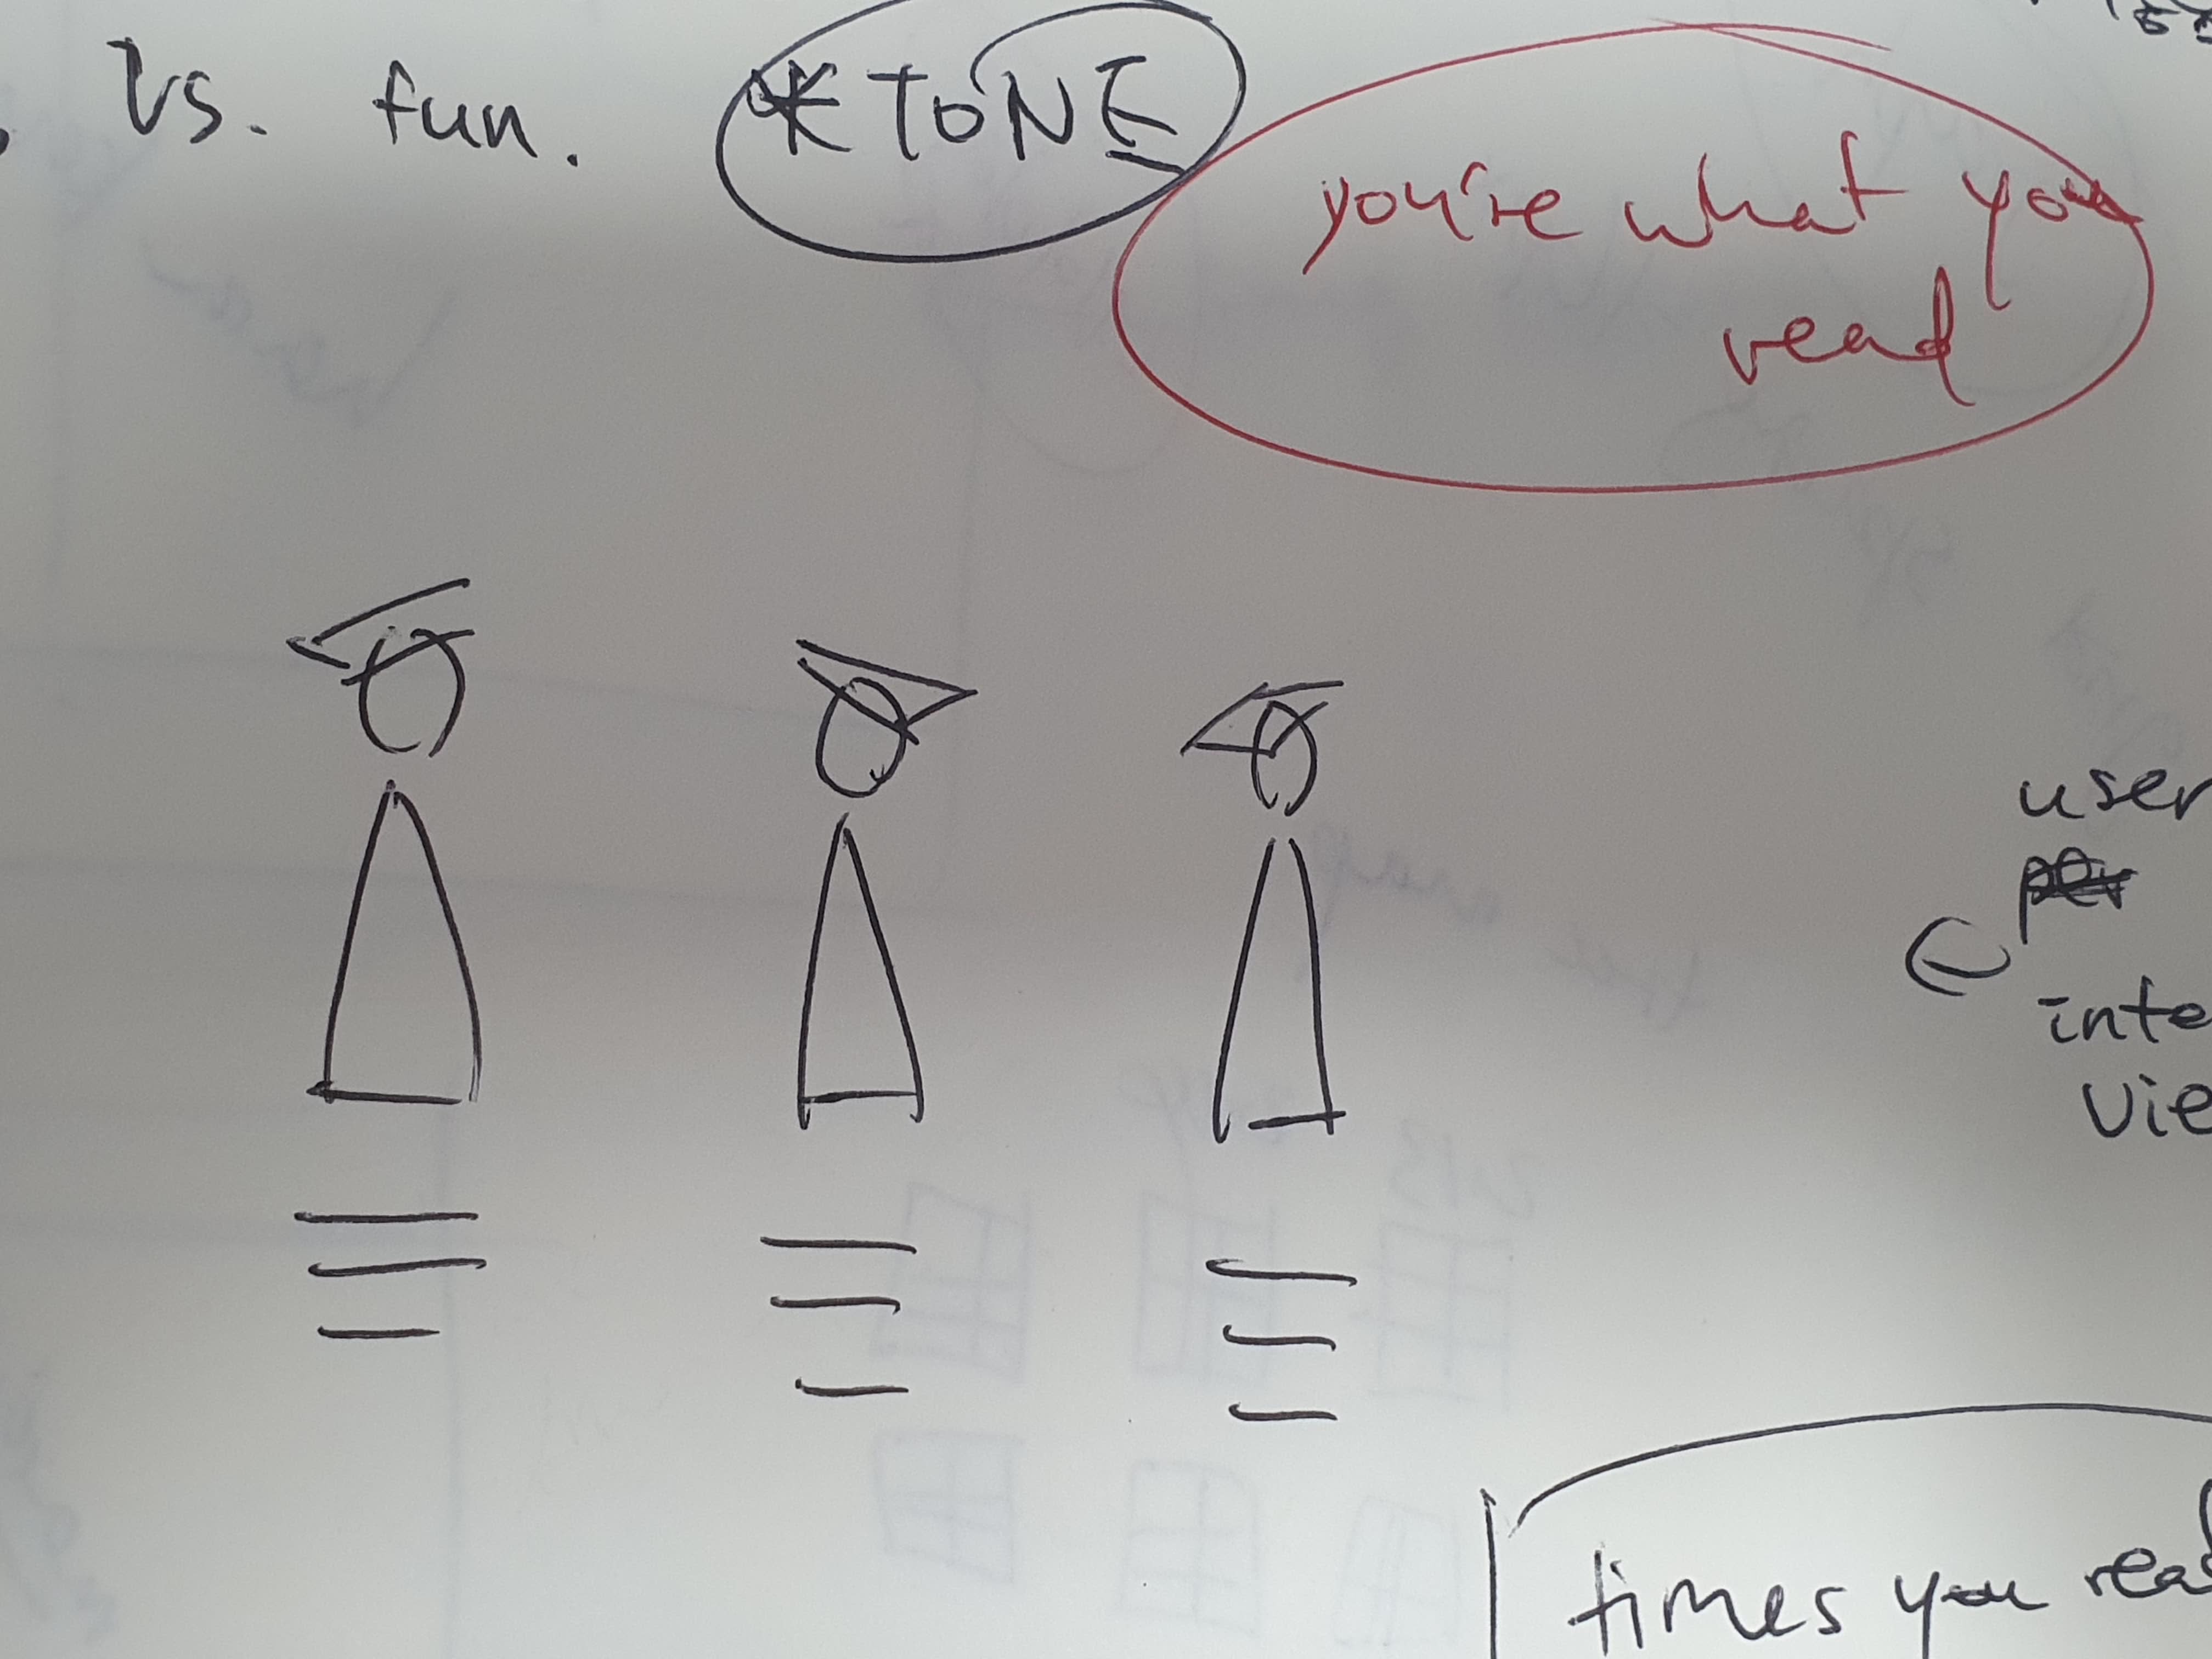 vs. fun. *TONE
you're what you
read
user
inte
vie
times you rea